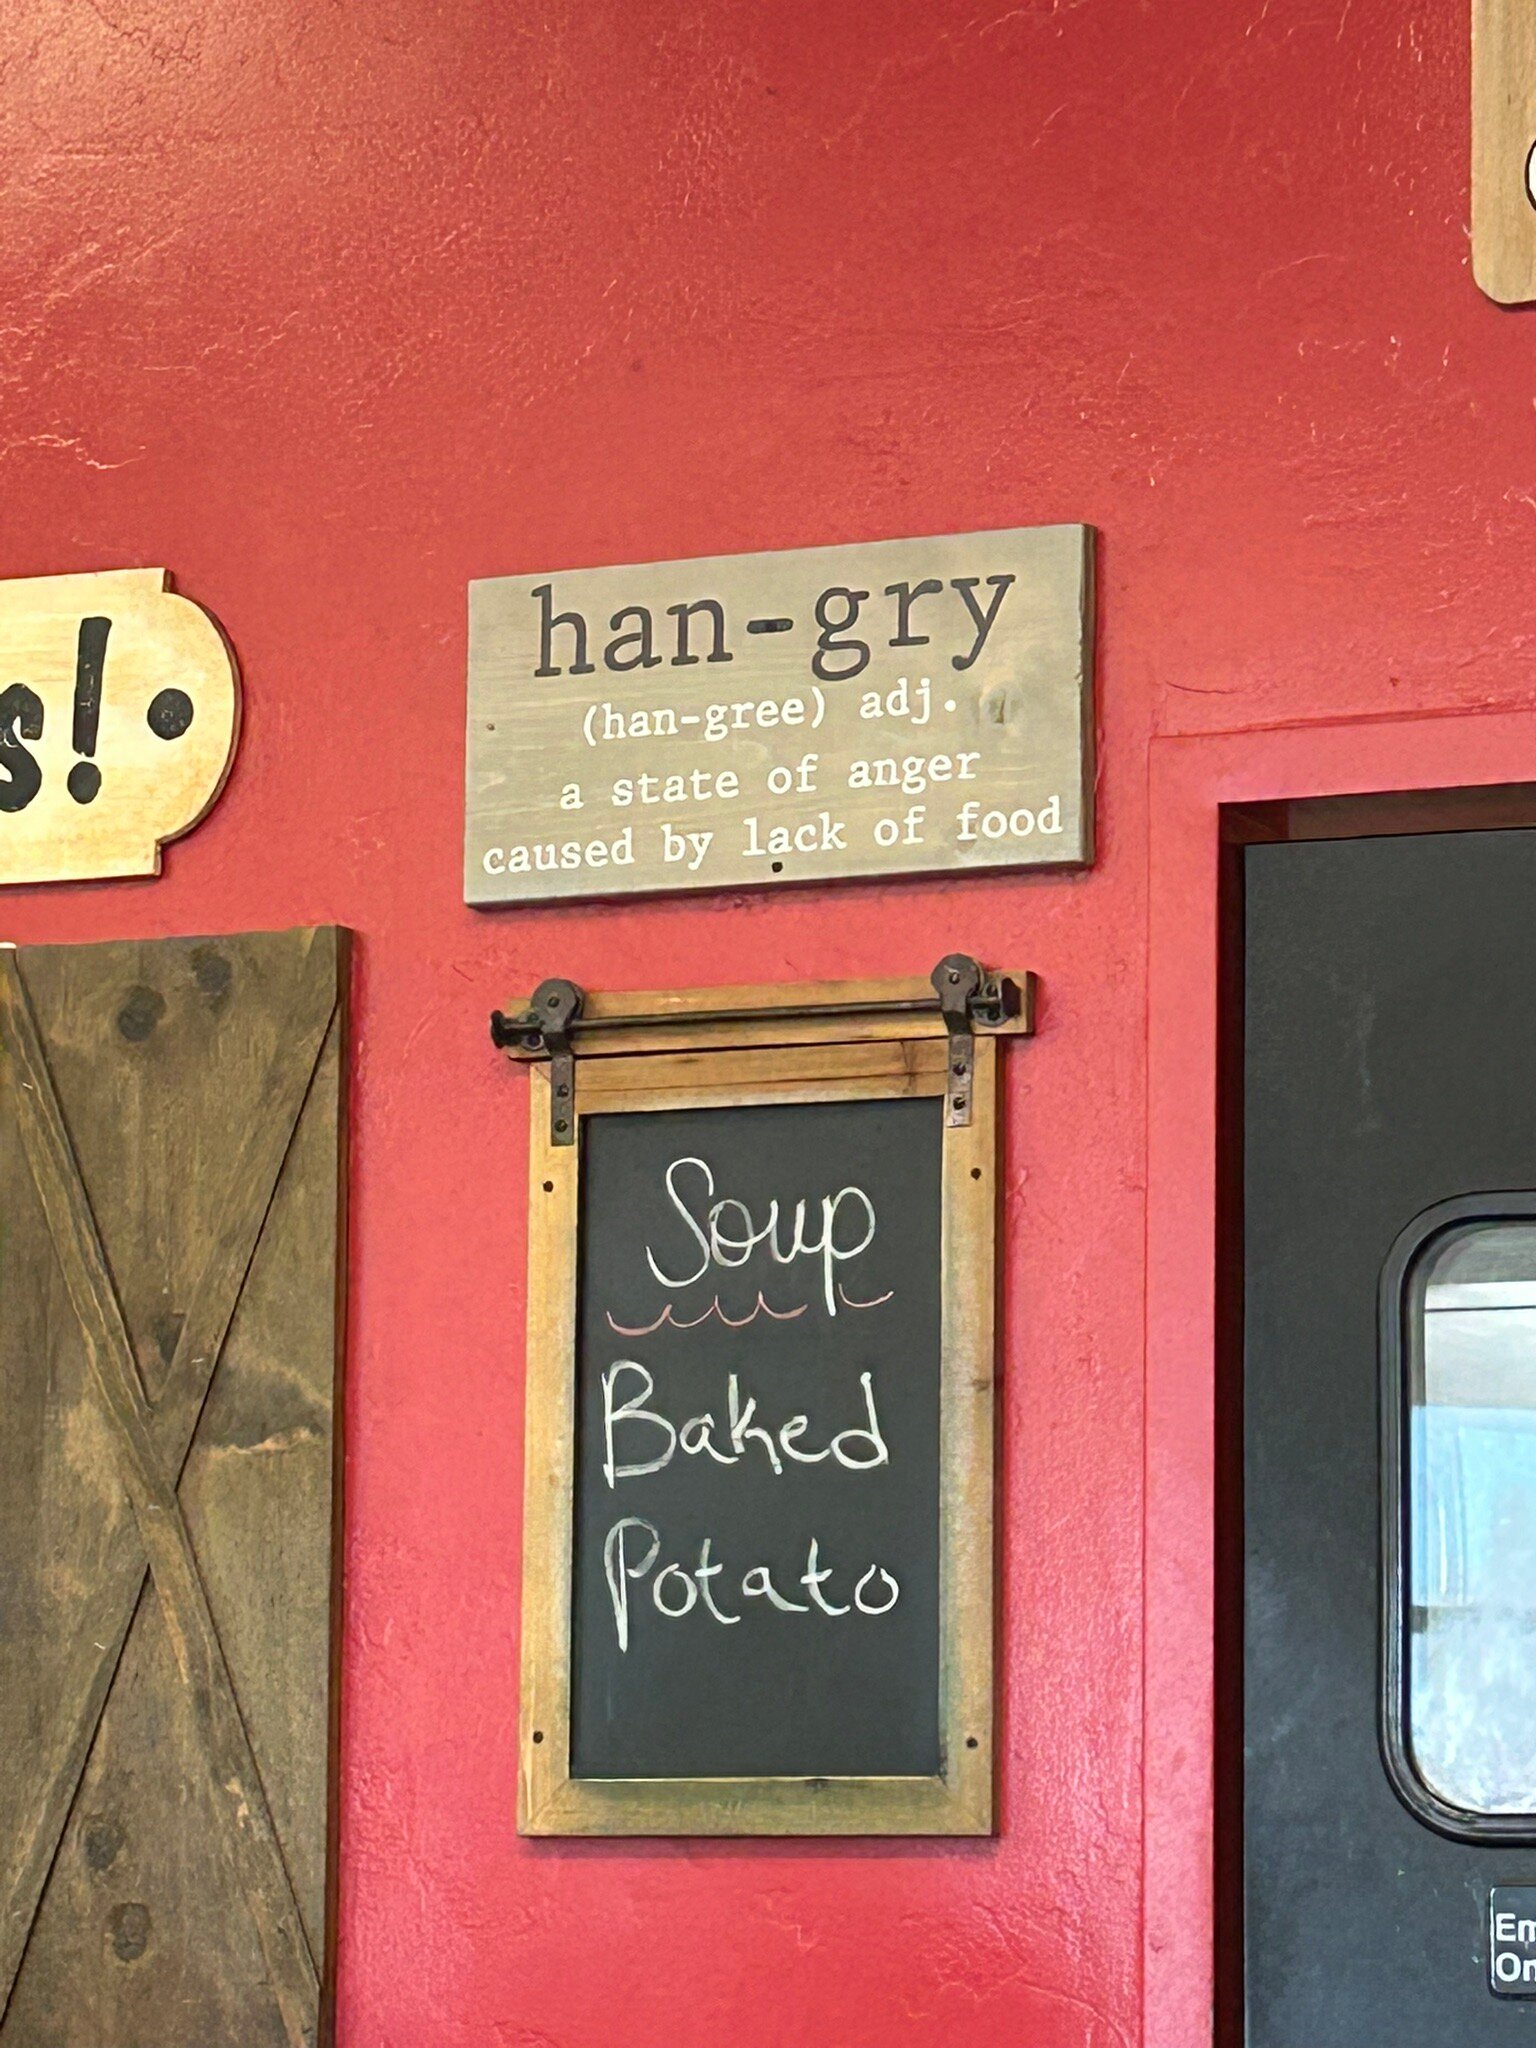 s!
han-gry
(han-gree) adj.
a state of anger
caused by lack of food
Soup
Baked
Potato